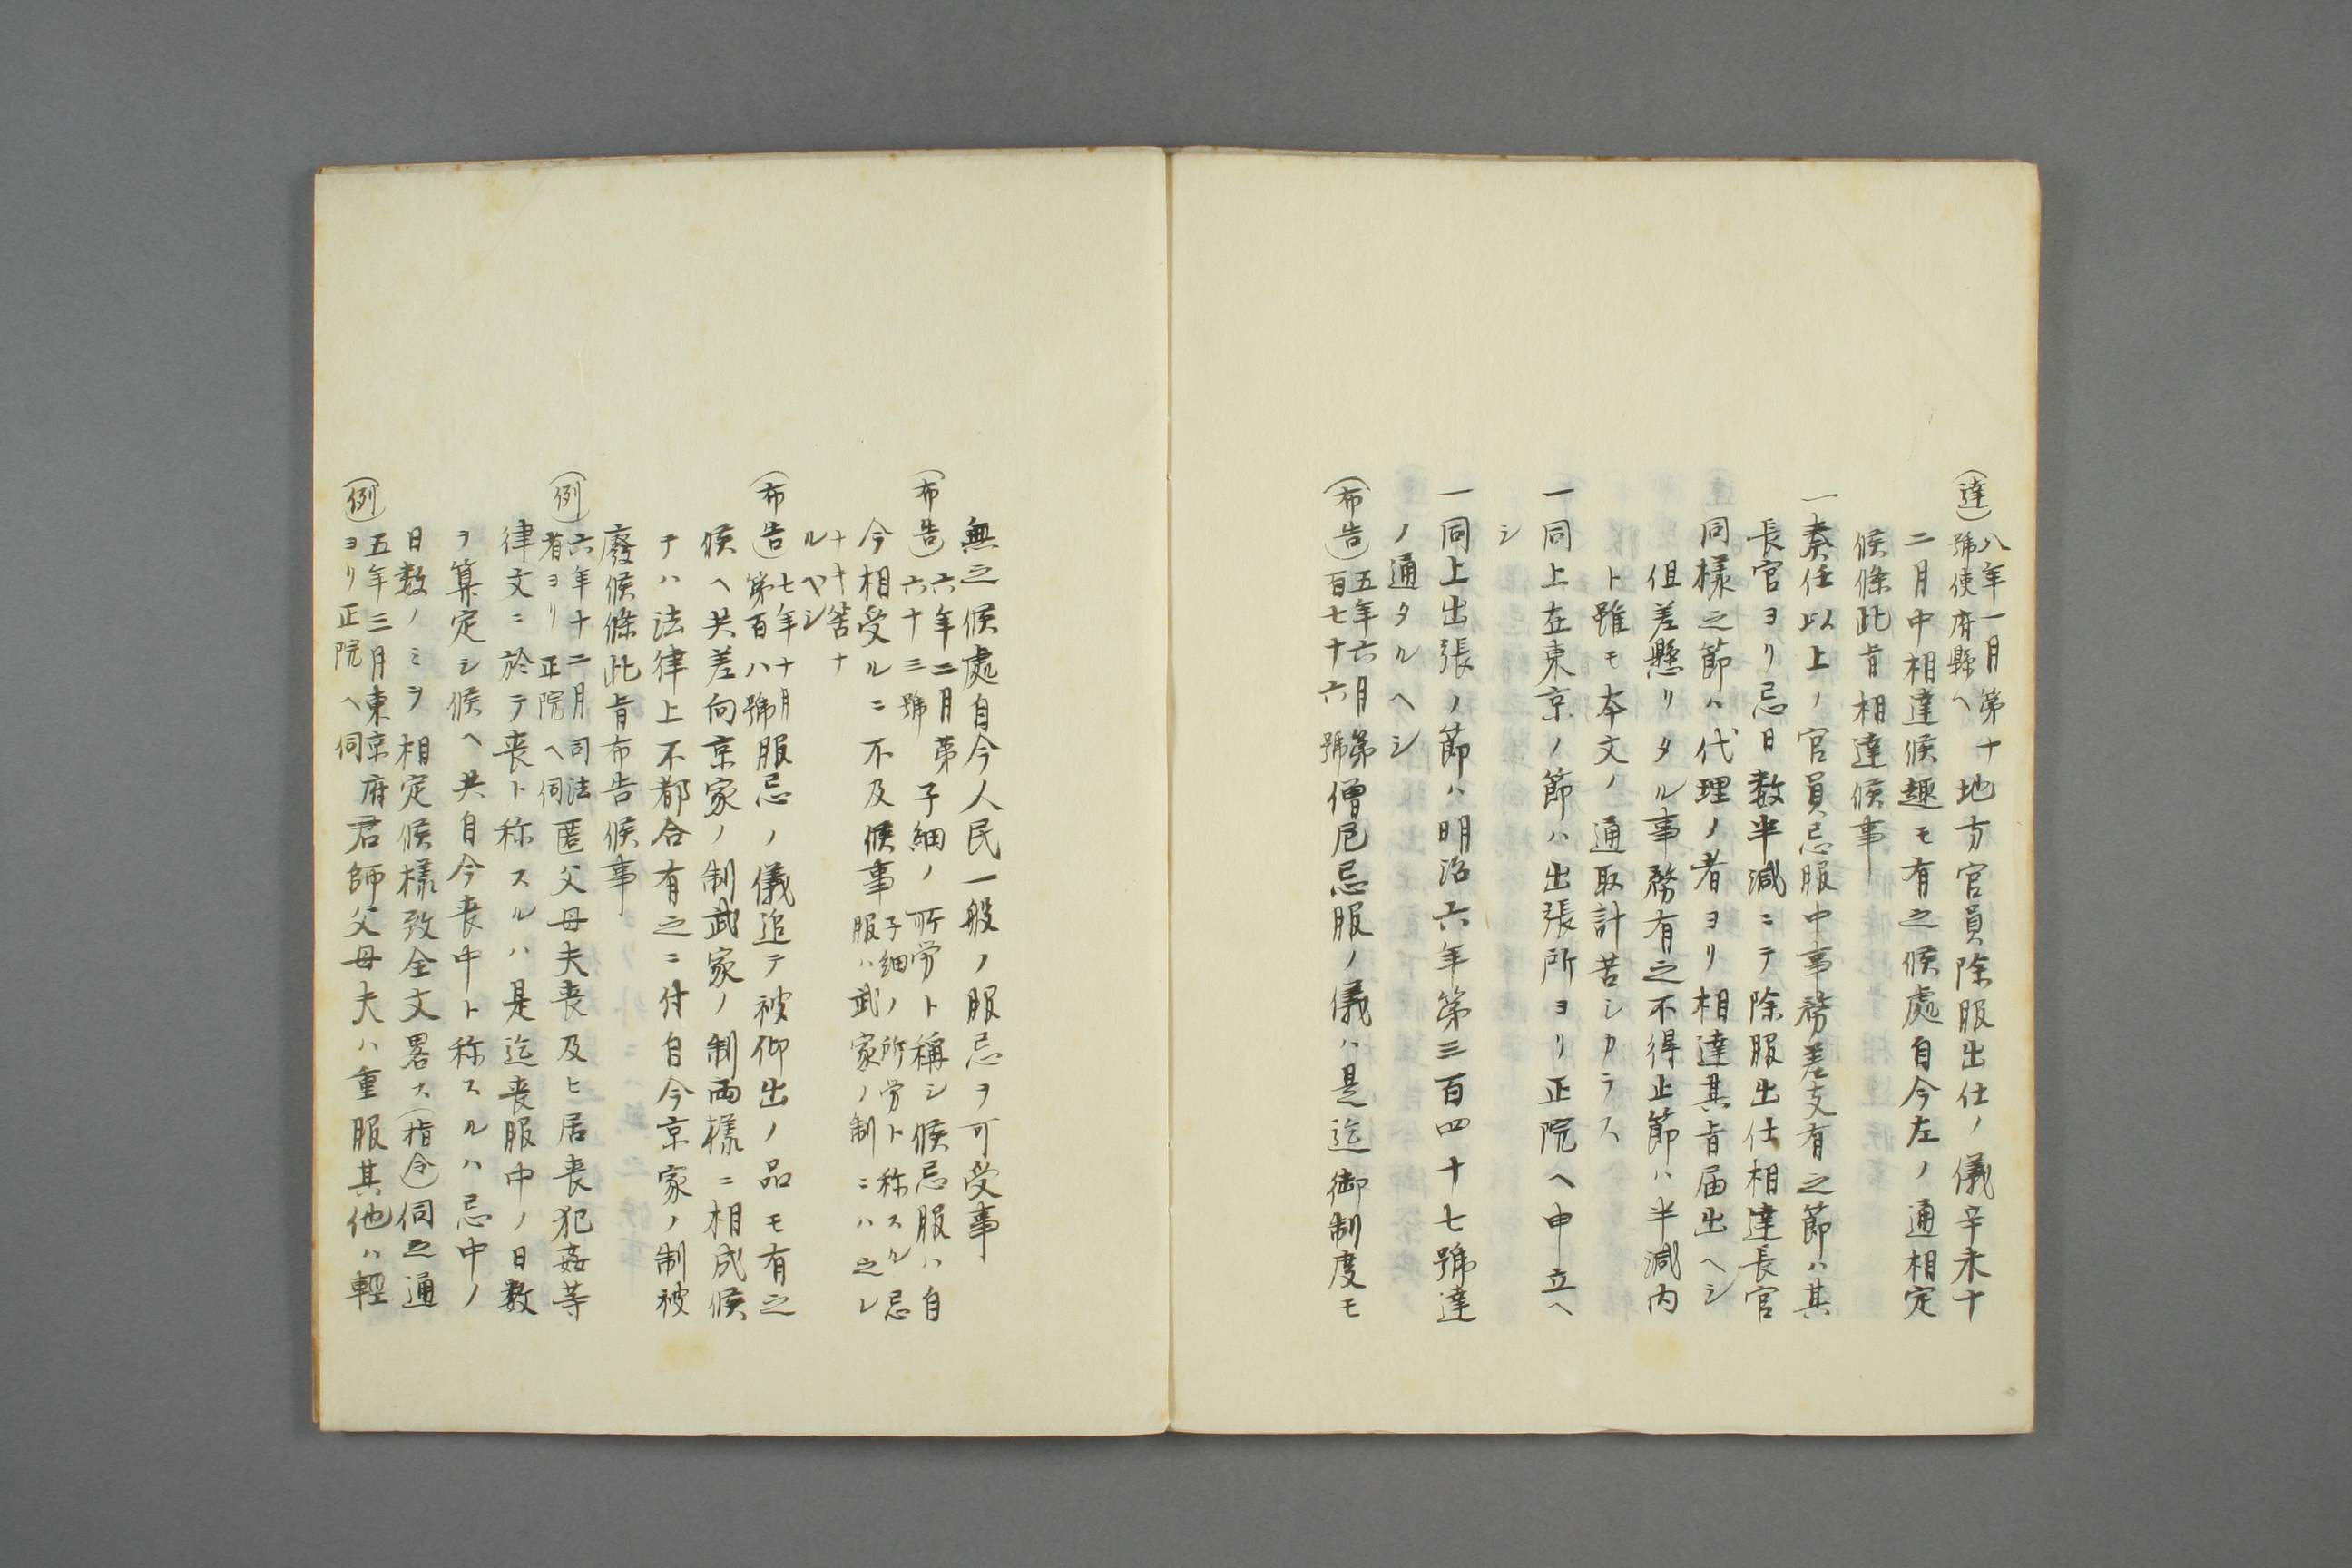 (達)八年一月第十號使府縣ヘ地方官員除服出仕ノ儀辛未十
二月中相達候趣モ有之候處自今左ノ通相定
候條此旨相達候事
一奏任以上ノ官員忌服中事務差支有之節ハ其
長官ヨリ忌日数半減ニテ除服出仕相達長官
同様之節ハ代理ノ者ヨリ相達其旨届出ヘシ
但差懸リタル事務有之不得止節ハ半減内
ト雖モ本文ノ通取計苦シカラス
一同上在東京ノ節ハ出張所ヨリ正院ヘ申立ヘ
シ
一同上出張ノ節ハ明治六年第三百四十七號達
ノ通タルヘシ
(布告)五年六月第百七十六號僧尼忌服ノ儀ハ是迄御制度モ
無之候處自今人民一般ノ服忌ヲ可受事
(布告)六年二月第六十三號子細ノ所労ト稱シ候忌服ハ自
今相受ルニ不及候事子細ノ所労ト称スル忌服ハ武家ノ制ニハ之レ
ナキ筈ナルヘシ
(布告)七年十月第百八號服忌ノ儀追テ被仰出ノ品モ有之
候ヘ共差向京家ノ制武家ノ制両様ニ相成候
テハ法律上不都合有之ニ付自今京家ノ制被
廢候條此旨布告候事
(例)六年十二月司法省ヨリ正院ヘ伺匿父母夫喪及ヒ居喪犯姦等
律文ニ於テ喪ト称スルハ是迄喪服中ノ日数
ヲ算定シ候ヘ共自今喪中ト称スルハ忌中ノ
日数ノミヲ相定候様致全文畧ス(指令)伺之通
(例)五年三月東京府ヨリ正院ヘ伺君師父母夫ハ重服其他ハ輕